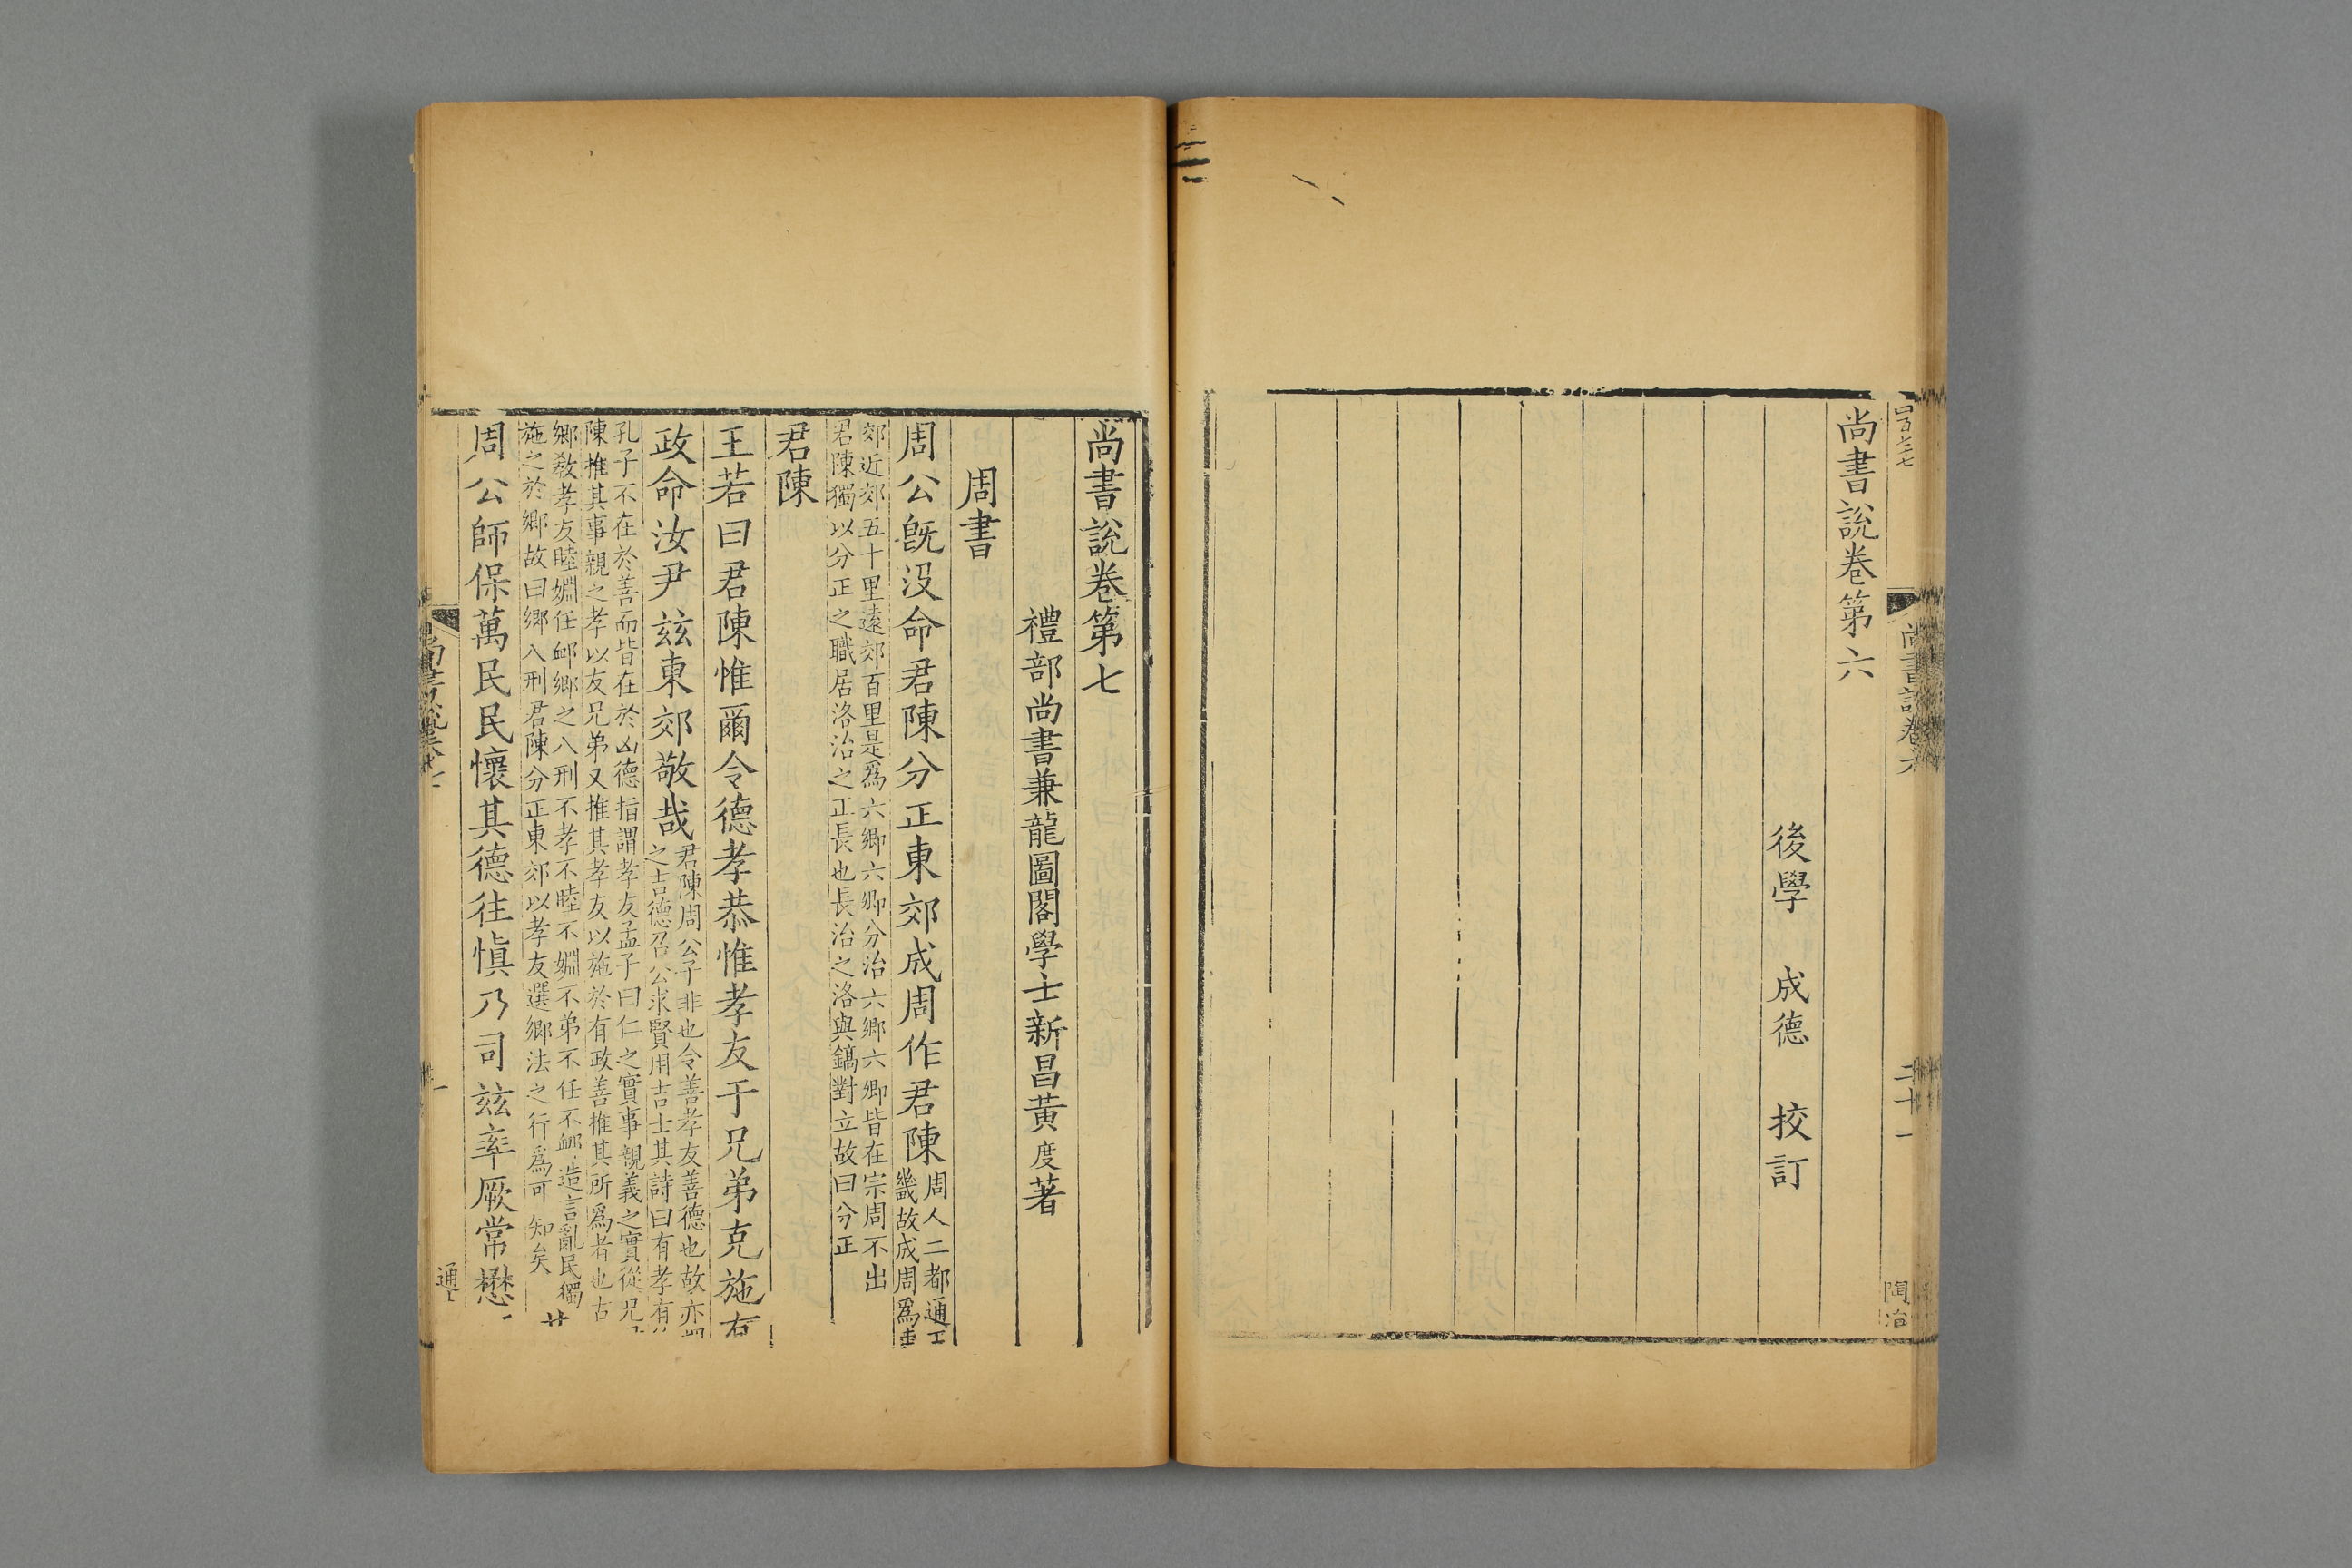 四百七十七
尚書說卷六
二十一
陶冶
尚書說卷第六
後學 成德 挍訂
尚書說卷第七
禮部尚書兼龍圖閣學士新昌黃度著
周書
周公旣沒命君陳分正東郊成周作君陳
周人二都通王
畿故成周爲東
郊近郊五十里遠郊百里是爲六鄉六卿分治六鄉六卿皆在宗周不出
君陳獨以分正之職居洛治之正長也長治之洛與鎬對立故曰分正
君陳
王若曰君陳惟爾令德孝恭惟孝友于兄弟克施有
政命汝尹玆東郊敬哉
君陳周公子非也令善孝友善德也故亦謂
之吉德召公求賢用吉士其詩曰有孝有
孔子不在於善而皆在於凶德指謂孝友孟子曰仁之實事親義之實從兄
陳推其事親之孝以友兄弟又推其孝友以施於有政善推其所爲者也古
鄉敎孝友睦婣任卹鄉之八刑不孝不睦不婣不弟不任不卹造言亂民獨
施之於鄉故曰鄉八刑君陳分正東郊以孝友選鄉法之行爲可知矣
周公師保萬民民懷其德往愼乃司玆率厥常懋
尚書說卷七
一
通